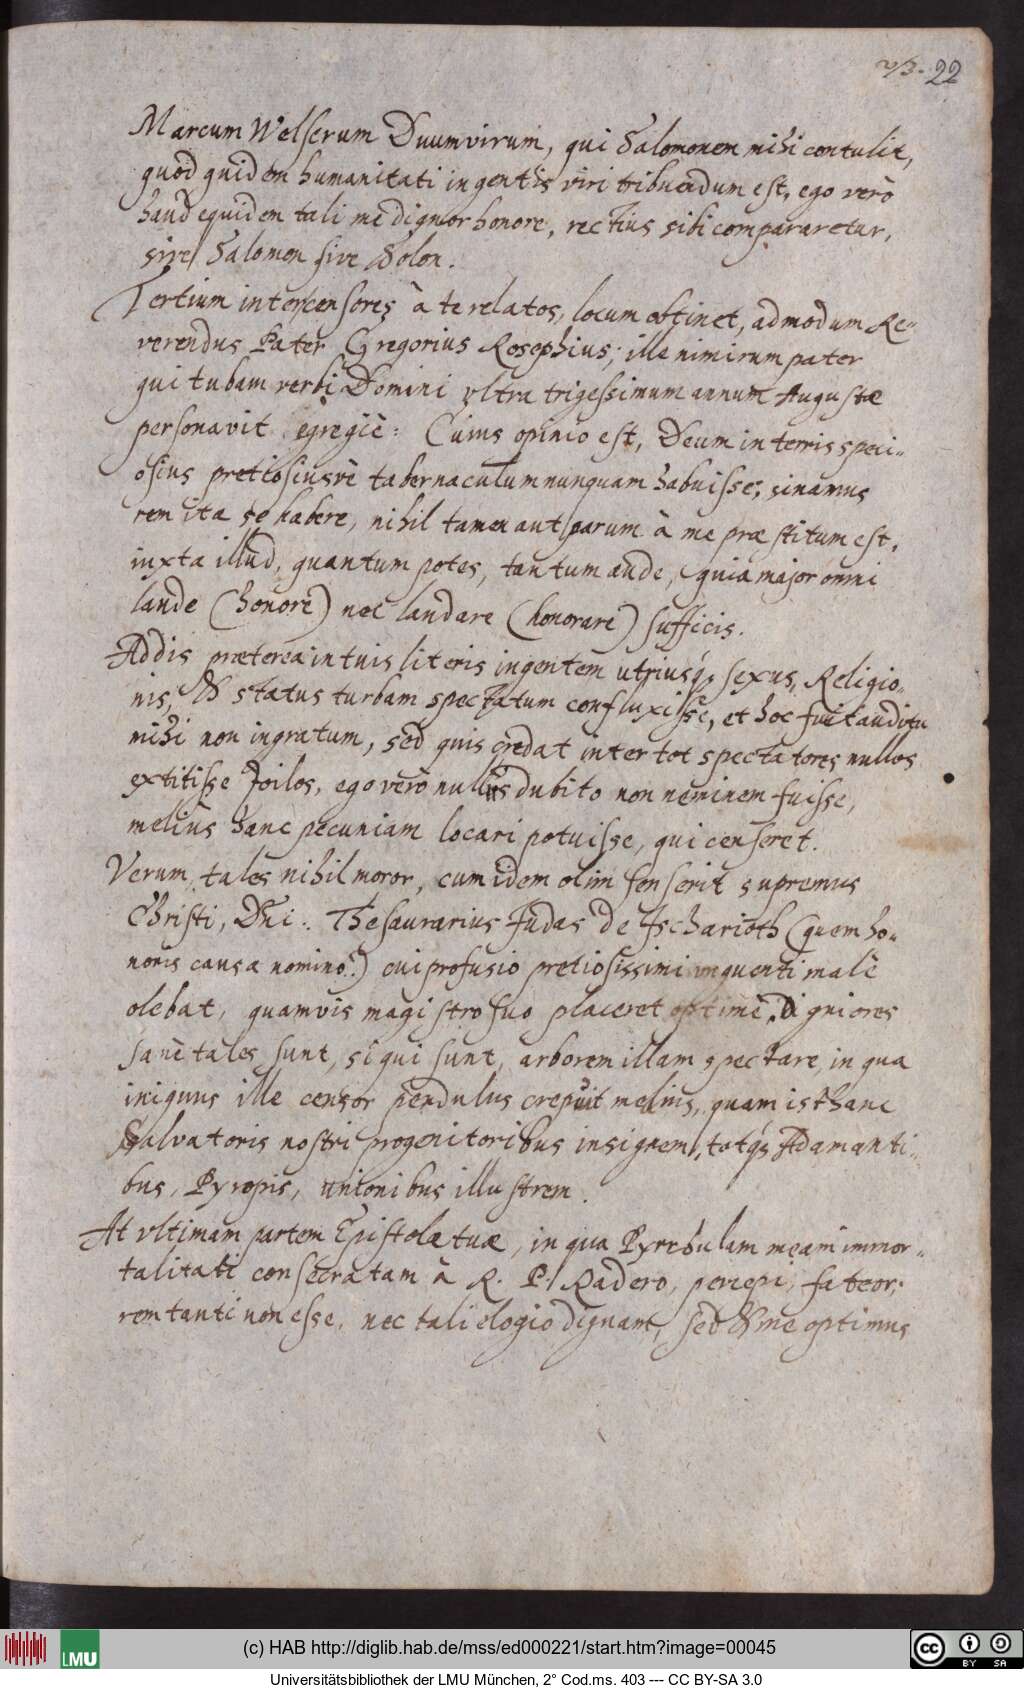 v3. 22
Marcum Welserum Duumvirum, qui Salomonem mihi contulit,
quod quidem humanitati ingentis viri tribuendum est, ego verò
haud equidem tali me dignor honore, rectius sibi compararetur,
sive Salomon sive Solon.
Tertium inter censores à te relatos, locum obtinet, admodum Re-
verendus Pater Gregorius Rosephius; ille nimirum pater
qui tubam verbi Domini vltra trigessimum annum Augustæ
personavit egregiè: Cuius opinio est, Deum in terris speci-
osius pretiosiusvè tabernaculum nunquam habuisse; sinamus
rem ita se habere, nihil tamen aut parum à me præstitum est,
iuxta illud, quantum potes, tantum aude, quia major omni
laude (honore) nec laudare (honorare) sufficis.
Addis præterea in tuis literis ingentem utriusq; sexus, Religio-
nis, & status turbam spectatum confluxisse, et hoc fuit auditu
mihi non ingratum, sed quis credat inter tot spectatores nullos
extitisse Zoilos, ego verò nullus dubito non neminem fuisse,
meliùs hanc pecuniam locari potuisse, qui censeret.
Verum tales nihil moror, cum idem olim senserit supremus
Christi, Dñi: Thesaurarius Judas de Ischarioth (quem ho-
noris causa nomino.) cui profusio pretiosissimi unguenti malè
olebat, quamvis magistro suo placeret optimè. Digniores
sanè tales sunt, si qui sunt, arborem illam spectare, in qua
iniquus ille censor pendulus crepuit medius, quam isthanc
Salvatoris nostri progenitoribus insignem, totq; Adamanti-
bus, Pyropis, unionibus illustrem.
At vltimam partem Epistolæ tuæ, in qua Pyrrbulam meam immor-
talitati consecratam à R. P. Radero, percepi, fateor;
rem tanti non esse, nec tali elogio dignam, sed & me optimus
(c) HAB http://diglib.hab.de/mss/ed000221/start.htm?image=00045
LMU
cc BY SA
Universitätsbibliothek der LMU München, 2° Cod.ms. 403 --- CC BY-SA 3.0